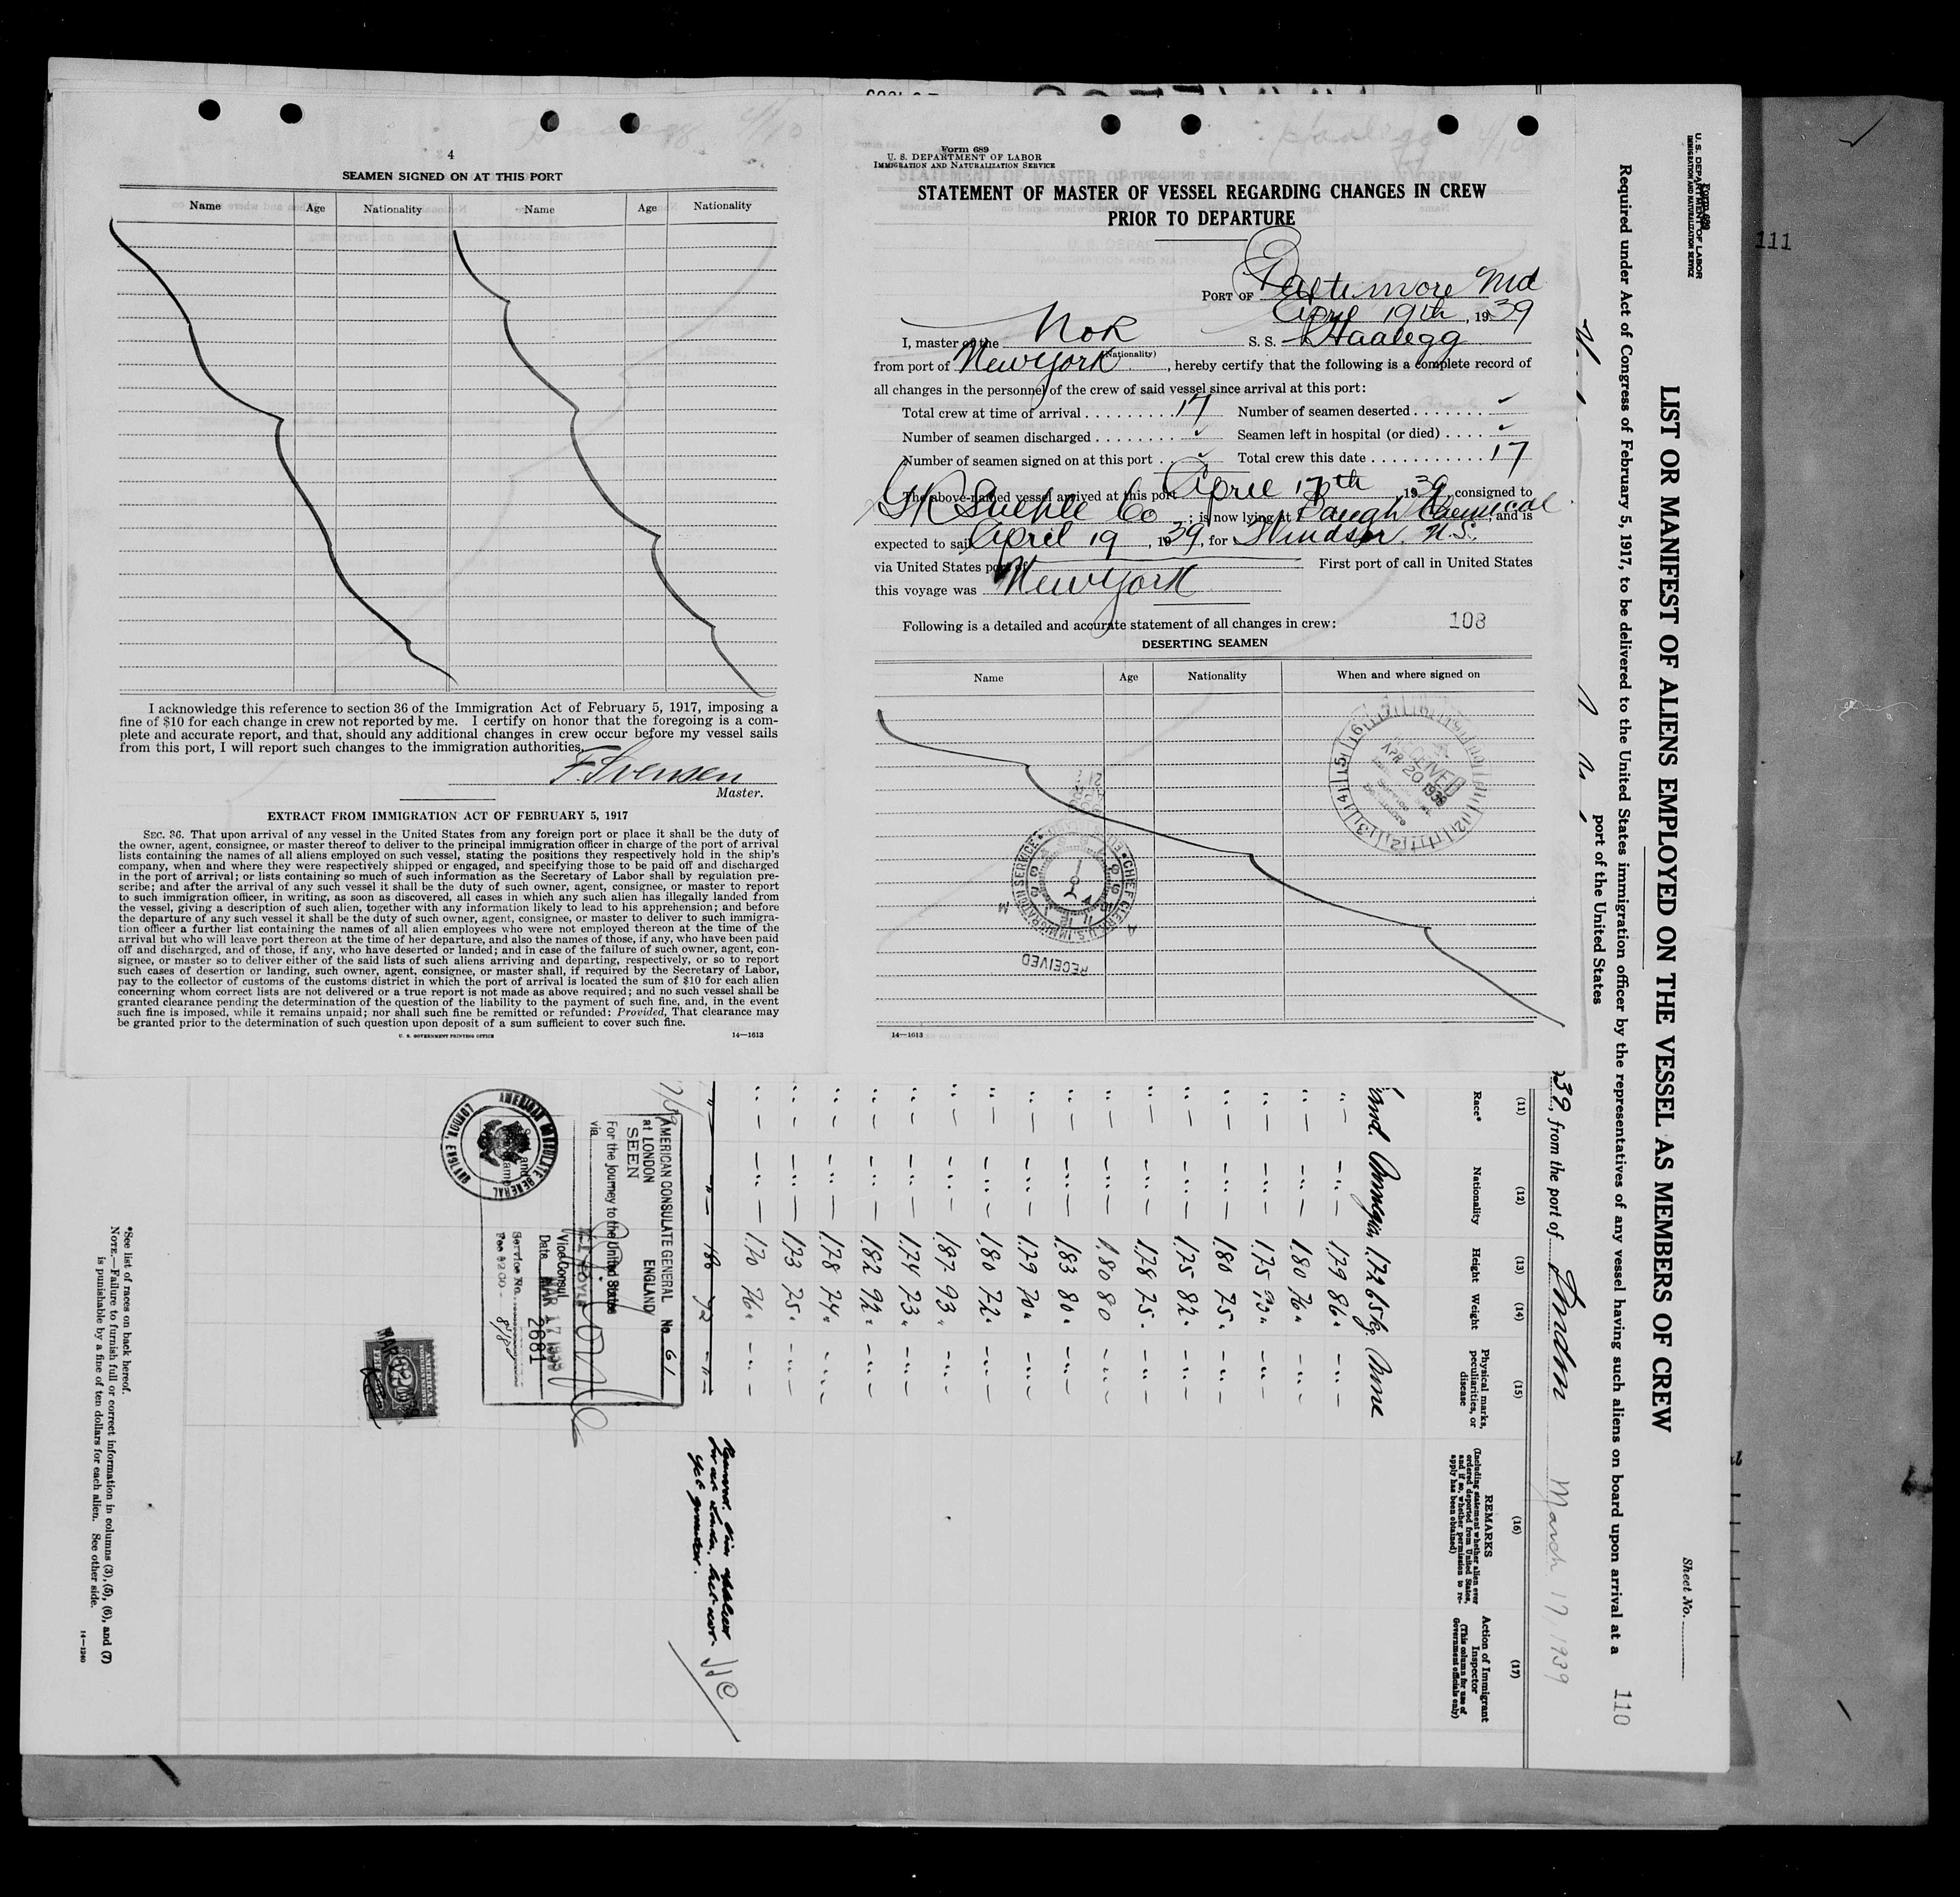 4
SEAMEN SIGNED ON AT THIS PORT
Name Age Nationality Name Age Nationality
I acknowledge this reference to section 36 of the Immigration Act of February 5, 1917, imposing a
fine of $10 for each change in crew not reported by me. I certify on honor that the foregoing is a com-
plete and accurate report, and that, should any additional changes in crew occur before my vessel sails
from this port, I will report such changes to the immigration authorities.
F. Svensen
Master.
EXTRACT FROM IMMIGRATION ACT OF FEBRUARY 5, 1917
SEC. 36. That upon arrival of any vessel in the United States from any foreign port or place it shall be the duty of
the owner, agent, consignee, or master thereof to deliver to the principal immigration officer in charge of the port of arrival
lists containing the names of all aliens employed on such vessel, stating the positions they respectively hold in the ship's
company, when and where they were respectively shipped or engaged, and specifying those to be paid off and discharged
in the port of arrival; or lists containing so much of such information as the Secretary of Labor shall by regulation pre-
scribe; and after the arrival of any such vessel it shall be the duty of such owner, agent, consignee, or master to report
to such immigration officer, in writing, as soon as discovered, all cases in which any such alien has illegally landed from
the vessel, giving a description of such alien, together with any information likely to lead to his apprehension; and before
the departure of any such vessel it shall be the duty of such owner, agent, consignee, or master to deliver to such immigra-
tion officer a further list containing the names of all alien employees who were not employed thereon at the time of the
arrival but who will leave port thereon at the time of her departure, and also the names of those, if any, who have been paid
off and discharged, and of those, if any, who have deserted or landed; and in case of the failure of such owner, agent, con-
signee, or master so to deliver either of the said lists of such aliens arriving and departing, respectively, or so to report
such cases of desertion or landing, such owner, agent, consignee, or master shall, if required by the Secretary of Labor,
pay to the collector of customs of the customs district in which the port of arrival is located the sum of $10 for each alien
concerning whom correct lists are not delivered or a true report is not made as above required; and no such vessel shall be
granted clearance pending the determination of the question of the liability to the payment of such fine, and, in the event
such fine is imposed, while it remains unpaid; nor shall such fine be remitted or refunded: Provided, That clearance may
be granted prior to the determination of such question upon deposit of a sum sufficient to cover such fine.
U. S. GOVERNMENT PRINTING OFFICE 14—1613
Form 689
U. S. DEPARTMENT OF LABOR
IMMIGRATION AND NATURALIZATION SERVICE
STATEMENT OF MASTER OF VESSEL REGARDING CHANGES IN CREW
PRIOR TO DEPARTURE
PORT OF Baltimore Md
April 19th, 1939
I, master of the Nor S. S. Haalegg
(Nationality)
from port of New York, hereby certify that the following is a complete record of
all changes in the personnel of the crew of said vessel since arrival at this port:
Total crew at time of arrival 17 Number of seamen deserted ✓
Number of seamen discharged ✓ Seamen left in hospital (or died) ✓
Number of seamen signed on at this port ✓ Total crew this date 17
The above-named vessel arrived at this port April 17th 1939, consigned to
Co; is now lying at Baugh Chemical, and is
expected to sail April 19, 1939, for Windsor. N.S.
via United States port of First port of call in United States
this voyage was New York
Following is a detailed and accurate statement of all changes in crew: 108
DESERTING SEAMEN
Name Age Nationality When and where signed on
RECEIVED
APR 20 1939
Baltimore
CHIEF CLERK U.S. IMMIGRATION SERVICE
RECEIVED
14—1613
Form 689
U. S. DEPARTMENT OF LABOR
IMMIGRATION AND NATURALIZATION SERVICE
Sheet No.
LIST OR MANIFEST OF ALIENS EMPLOYED ON THE VESSEL AS MEMBERS OF CREW
Required under Act of Congress of February 5, 1917, to be delivered to the United States immigration officer by the representatives of any vessel having such aliens on board upon arrival at a
port of the United States
110
111
39, from the port of London March 17, 1939
(11) (12) (13) (14) (15) (16) (17)
Race* Nationality Height Weight Physical marks, peculiarities, or disease
REMARKS
(Including statement whether alien ever ordered deported from United States, and if so, whether permission to re-apply has been obtained)
Action of Immigrant Inspector
(This column for use of Government officials only)
172 65kg. None
179 86
180 76
175
180 75
175 82
178 75
180 80
183 80
179 70
180 72
187 93
174 73
182 92
178 74
173 75
170 76
180 72
AMERICAN CONSULATE GENERAL No. 61
at LONDON ENGLAND
SEEN
For the Journey to the United States
via
Vice Consul
Date MAR 17 1939
Service No. 2681
AMERICAN CONSULATE GENERAL LONDON, ENGLAND
*See list of races on back hereof.
NOTE.—Failure to furnish full or correct information in columns (3), (5), (6), and (7)
is punishable by a fine of ten dollars for each alien. See other side.
14—1240